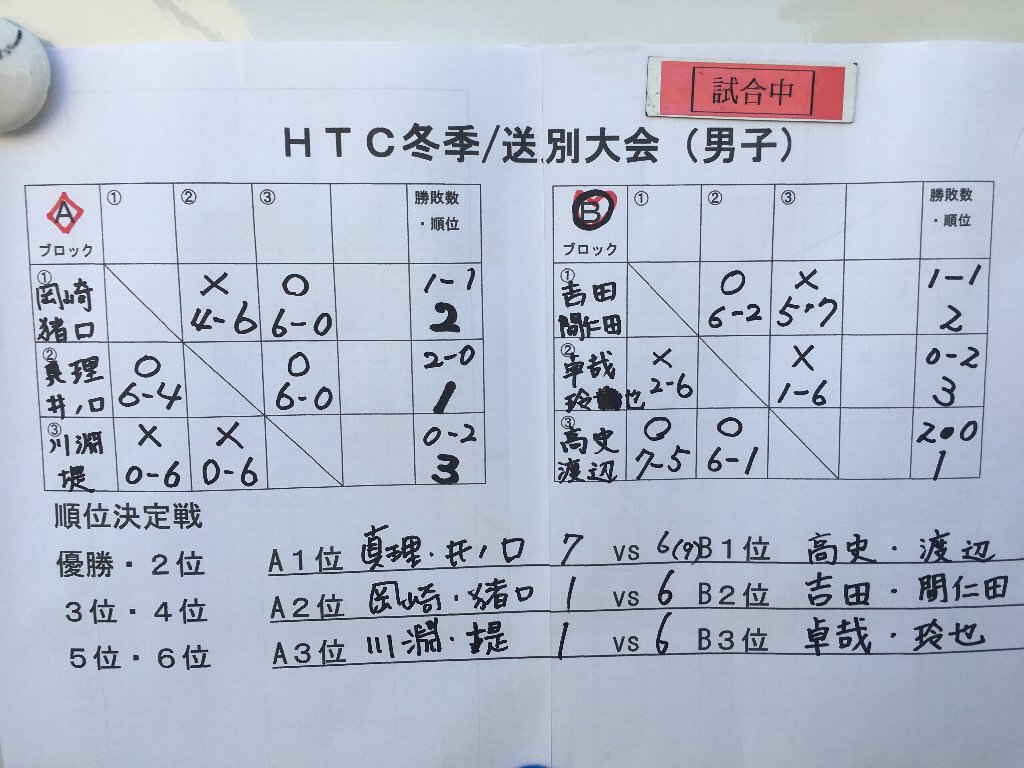 試合中
HTC冬季/送別大会（男子）
A ブロック ① ② ③ 勝敗数・順位
① 岡崎 猪口 × 4-6 ○ 6-0 1-1 2
② 真理 井ノ口 ○ 6-4 ○ 6-0 2-0 1
③ 川淵 堤 × 0-6 × 0-6 0-2 3
B ブロック ① ② ③ 勝敗数・順位
① 吉田 間仁田 ○ 6-2 × 5-7 1-1 2
② 卓哉 玲也 × 2-6 × 1-6 0-2 3
③ 高史 渡辺 ○ 7-5 ○ 6-1 2-0 1
順位決定戦
優勝・2位 A1位 真理・井ノ口 7 vs 6(9) B1位 高史・渡辺
3位・4位 A2位 岡崎・猪口 1 vs 6 B2位 吉田・間仁田
5位・6位 A3位 川淵・堤 1 vs 6 B3位 卓哉・玲也